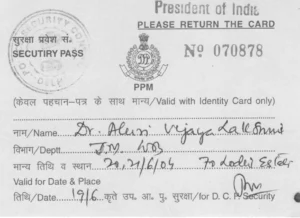 President of India
PLEASE RETURN THE CARD
SECURITY CO
DELHI
सुरक्षा प्रवेश सं.
SECUTIRY PASS
Nº 070878
PPM
(केवल पहचान-पत्र के साथ मान्य/Valid with Identity Card only)
नाम/Name Dr. Aluri Vijaya Lakshmi
विभाग/Deptt J.M. WB
मान्य तिथि व स्थान 20,21/6/04 70 Lodi Estate
Valid for Date & Place
तिथि/Date 19/6 कृते उप. आ. पु. सुरक्षा/for D. C. P. Security